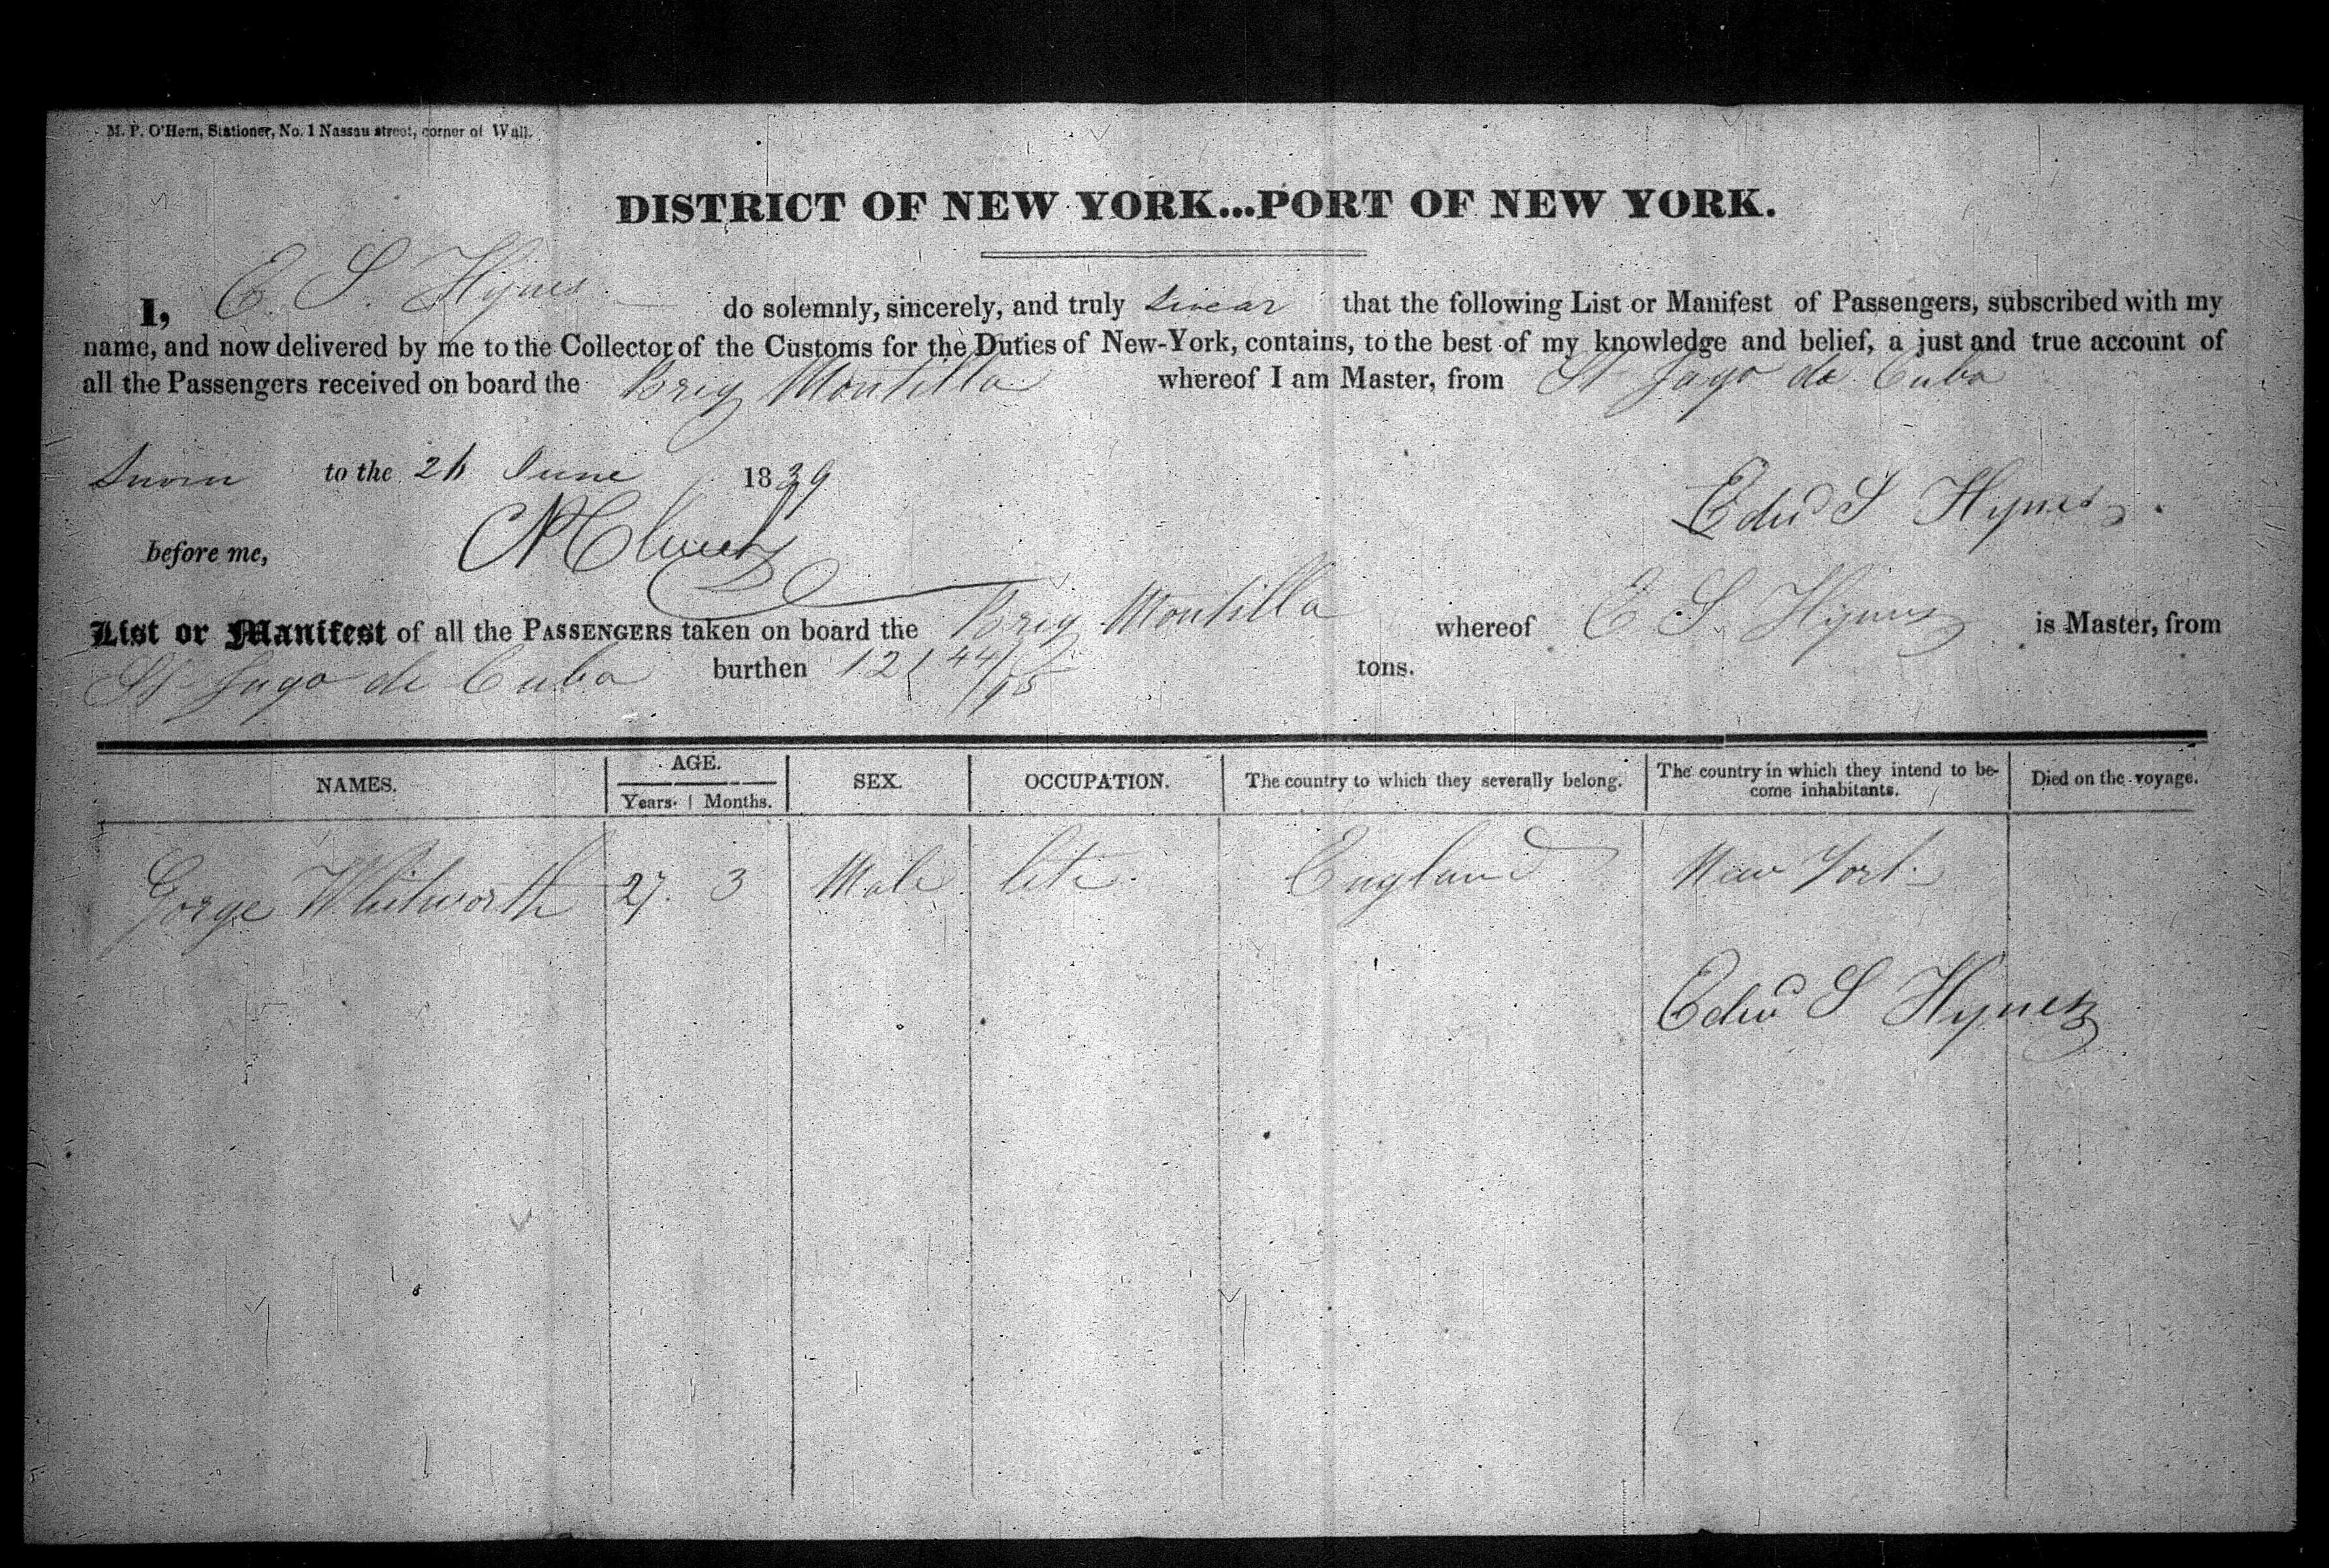 M. P. O'Hern, Stationer, No. 1 Nassau street, corner of Wall.
DISTRICT OF NEW YORK...PORT OF NEW YORK.
I, E. S. Hynes do solemnly, sincerely, and truly swear that the following List or Manifest of Passengers, subscribed with my
name, and now delivered by me to the Collector of the Customs for the Duties of New-York, contains, to the best of my knowledge and belief, a just and true account of
all the Passengers received on board the Brig Montilla whereof I am Master, from St Jago de Cuba
Sworn to the June 1839
Edwd S Hynes
before me,
List or Manifest of all the PASSENGERS taken on board the Brig Montilla whereof E S Hynes is Master, from
St Jago de Cuba burthen 121 44/95 tons.
NAMES. AGE. SEX. OCCUPATION. The country to which they severally belong. The country in which they intend to be- Died on the voyage.
Years. Months. come inhabitants.
Gorge Whitworth 27. 3 Male England New York
Edwd S Hynes